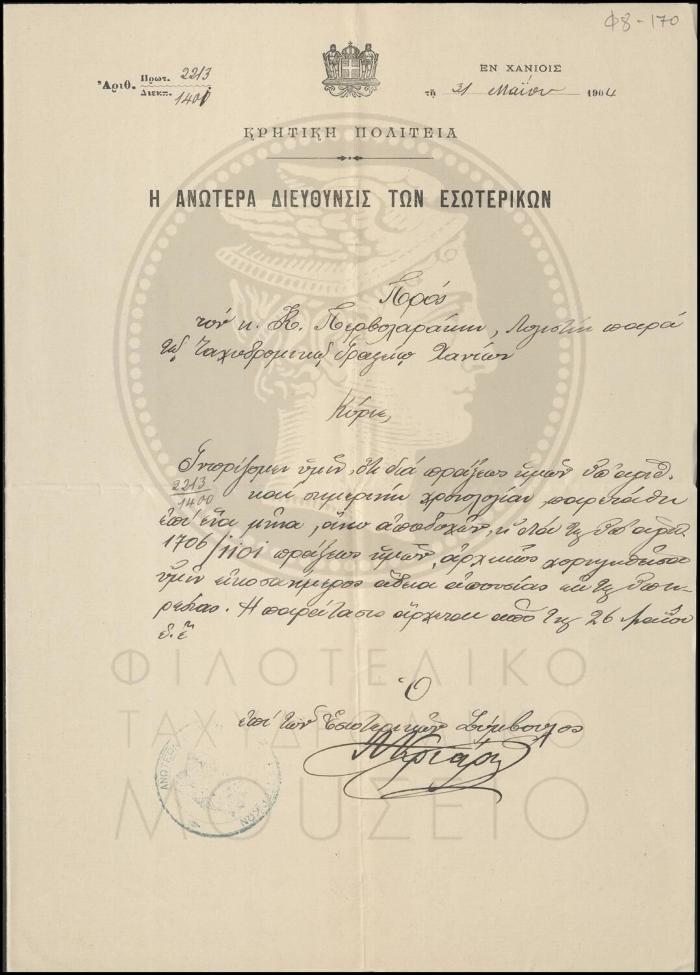 Φ8-170
Ἀριθ. Πρωτ. 2213
Διεκπ. 1400
ΕΝ ΧΑΝΙΟΙΣ
τῇ 31 Μαΐου 1904
ΚΡΗΤΙΚΗ ΠΟΛΙΤΕΙΑ
Η ΑΝΩΤΕΡΑ ΔΙΕΥΘΥΝΣΙΣ ΤΩΝ ΕΣΩΤΕΡΙΚΩΝ
Πρός
τόν κ. Κ. Περβολαράκην, Λογιστήν παρά
τῷ Ταχυδρομικῷ Γραφείῳ Χανίων
Κύριε,
Γνωρίζομεν ὑμῖν, ὅτι διά πράξεως ἡμῶν ὑπ' ἀριθ.
2213/1400 καί σημερινήν χρονολογίαν, παρετάθη
ἐπί ἕνα μῆνα, ἄνευ ἀποδοχῶν, ἡ διά τῆς ὑπ' ἀριθ.
1706/1101 πράξεως ἡμῶν, ἀρχικῶς χορηγηθεῖσα
ὑμῖν εἰκοσαήμερος ἄδεια ἀπουσίας ἐκ τῆς ὑπη-
ρεσίας. Ἡ παράτασις ἄρχεται ἀπό τῆς 26 Μαΐου
ἐ.ἔ.
Ὁ
ἐπί τῶν Ἐσωτερικῶν Σύμβουλος
ΦΙΛΟΤΕΛΙΚΟ
ΤΑΧΥΔΡΟΜΙΚΟ
ΜΟΥΣΕΙΟ